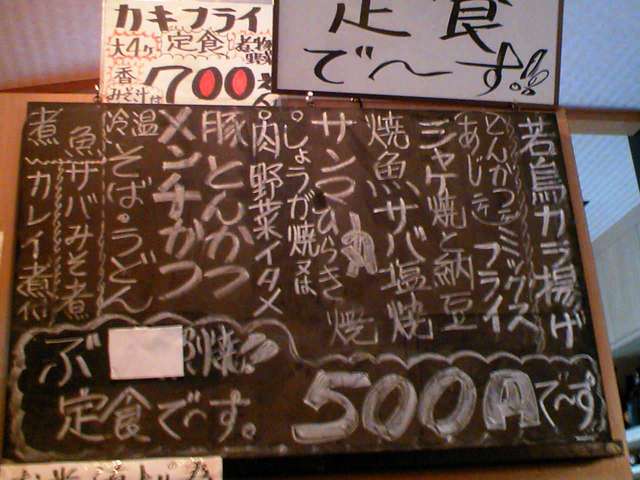 カキフライ
大4ヶ
定食
煮物
香
みそ汁
700
定食
で〜す!!
若鳥カラ揚げ
とんかつ
ミックス
フライ
あじ
シャケ焼と納豆
焼魚、サバ塩焼
サンマひらき焼
しょうが焼又は
肉野菜イタメ
豚とんかつ
メンチかつ
冷温そば・うどん
魚サバみそ煮
煮カレイ煮付
ぶ
焼
定食で〜す。
500円で〜す